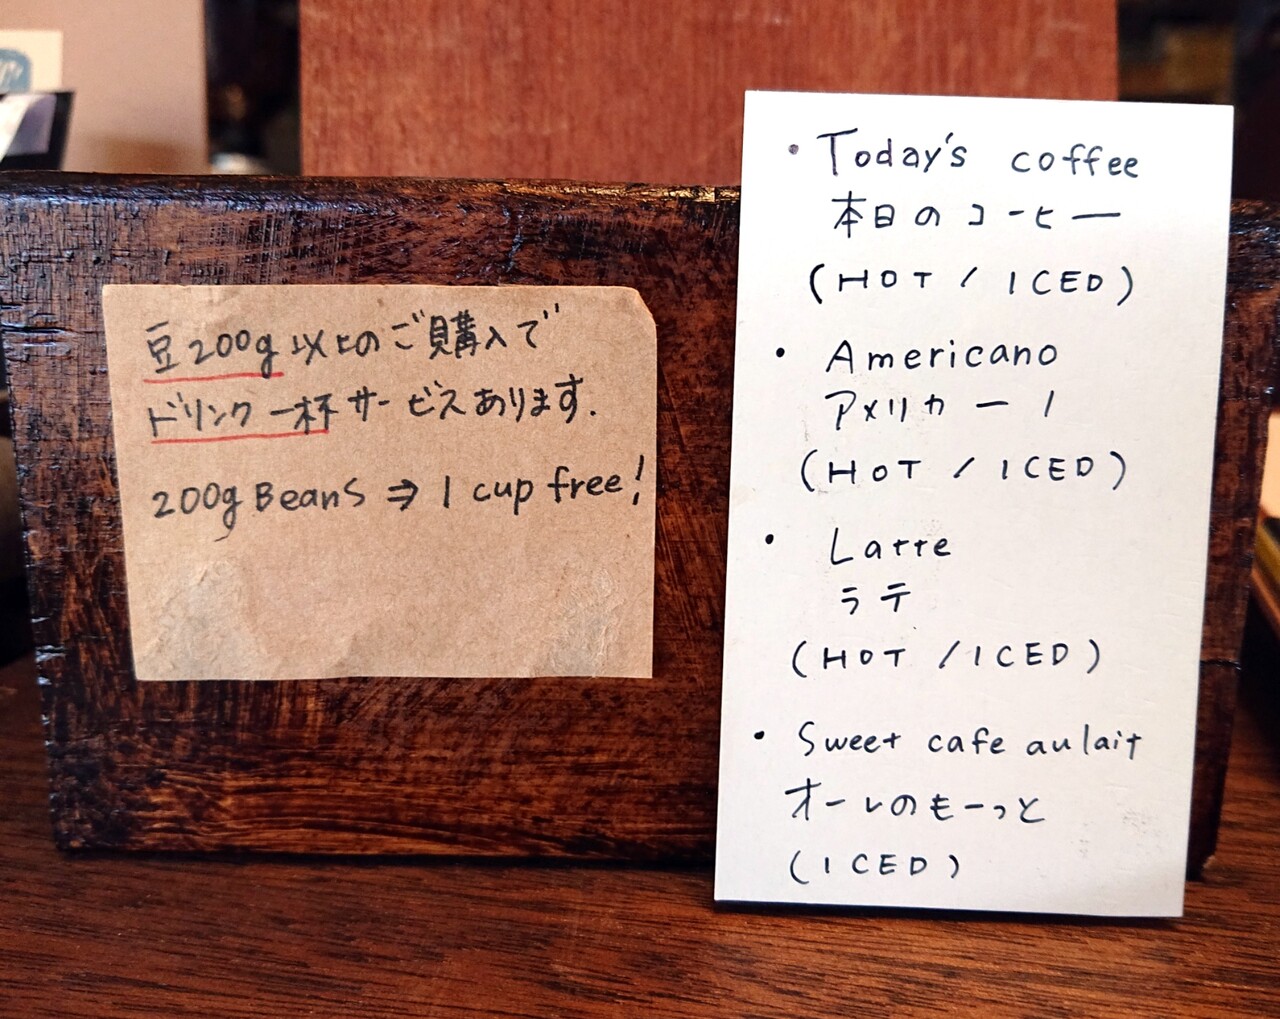 豆200g以上のご購入で
ドリンク一杯サービスあります.
200g Beans ⇒ 1 cup free!
・Today's coffee
本日のコーヒー
(HOT / ICED)
・Americano
アメリカーノ
(HOT / ICED)
・Latte
ラテ
(HOT / ICED)
・Sweet cafe au lait
オーレのもーっと
(ICED)